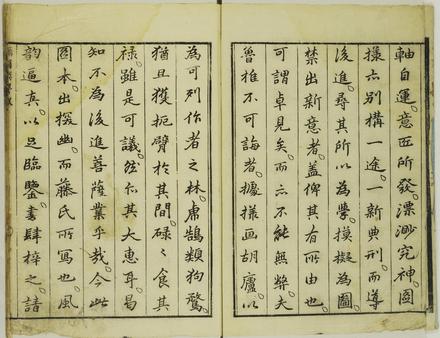 軸自運意匠所發漂渺究神圖
據六別構一途一新典刑而導
後進尋其所以為夢模擬為圖
禁出新意者蓋俾其有所由也
可謂卓見矣而亦不能無弊夫
魯推不可誨者據㨾画胡廬以
為可列作者之林虎鵠類狗鶩
猶且獲扼臂於其間碌々食其
祿雖是可議然亦其大惠耳曷
知不為後進善薩業乎哉今此
圖本出探幽而藤氏所写也風
韵逼真以足臨鑒書肆梓之請